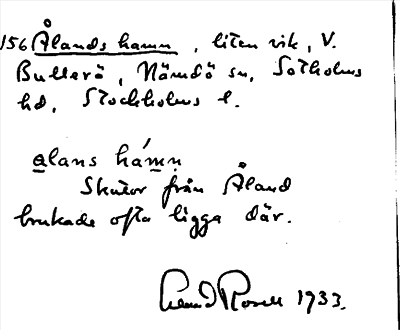 156 Ålands hamn, liten vik, V.
Bullerö, Nämdö sn, Sotholms
hd, Stockholms l.
alans hámn
Skutor från Åland
brukade ofta ligga där.
1933.